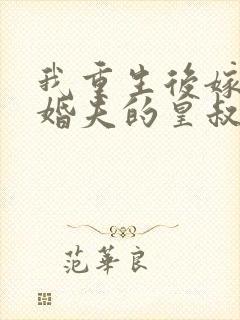 我重生後嫁
婚夫的皇叔
范華良